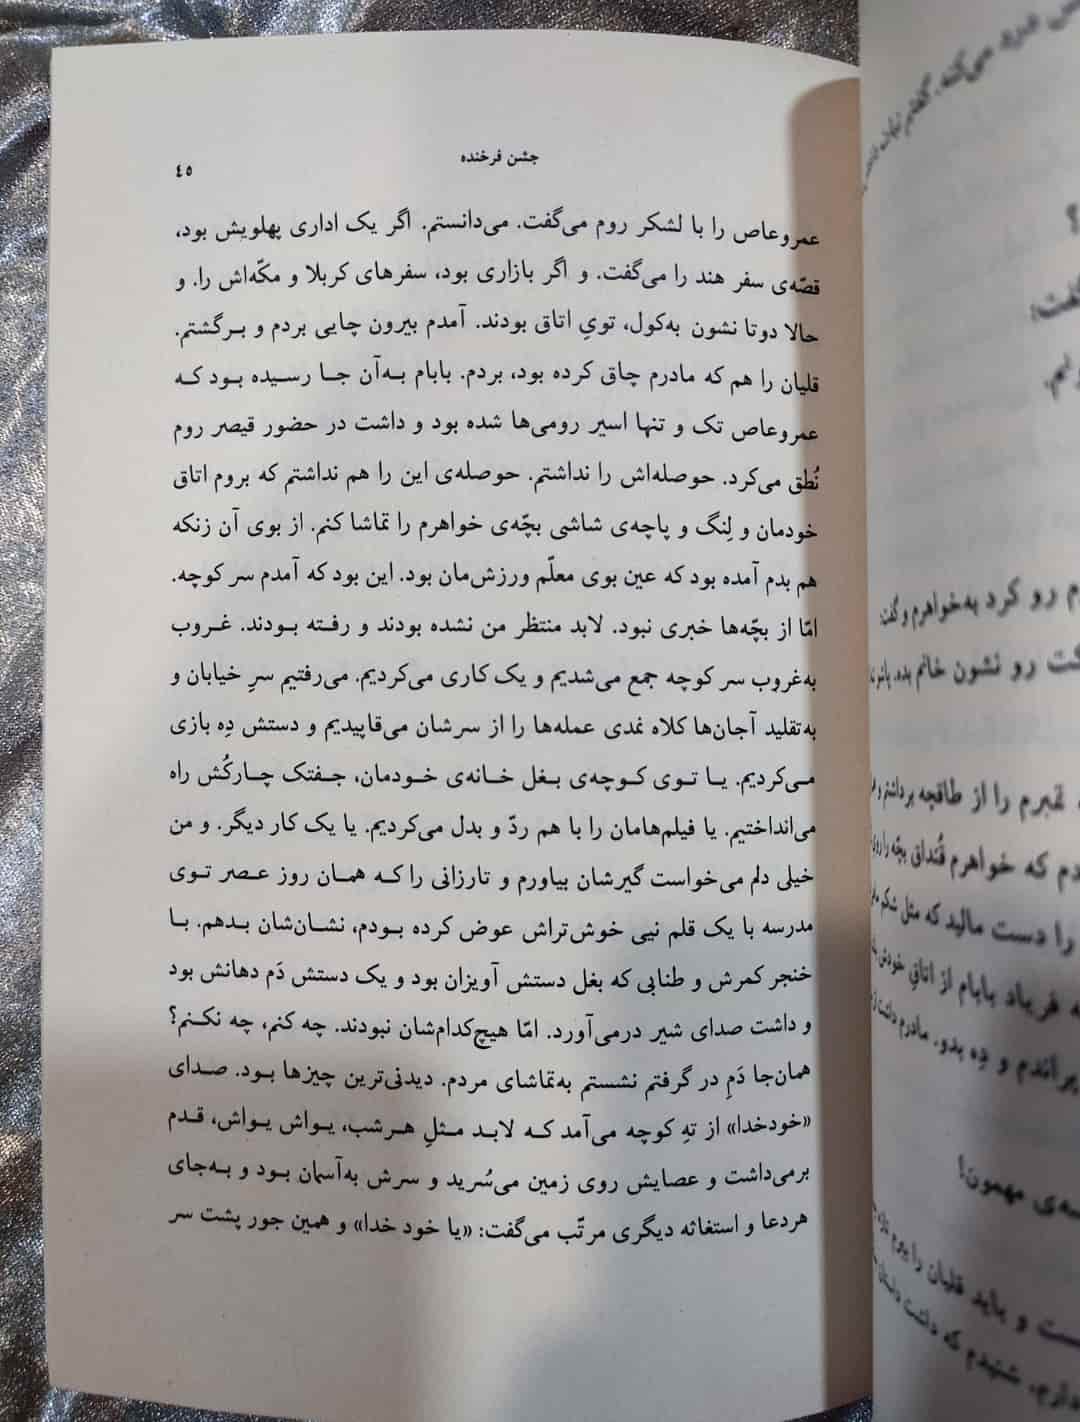 جشن فرخنده
٤٥
عمروعاص را با لشکر روم می‌گفت. می‌دانستم. اگر یک اداری پهلویش بود،
قصّه‌ی سفر هند را می‌گفت. و اگر بازاری بود، سفرهای کربلا و مکّه‌اش را. و
حالا دوتا نشون به‌کول، تویِ اتاق بودند. آمدم بیرون چایی بردم و برگشتم.
قلیان را هم که مادرم چاق کرده بود، بردم. بابام به‌آن جا رسیده بود که
عمروعاص تک و تنها اسیر رومی‌ها شده بود و داشت در حضور قیصر روم
نُطق می‌کرد. حوصله‌اش را نداشتم. حوصله‌ی این را هم نداشتم که بروم اتاق
خودمان و لِنگ و پاچه‌ی شاشی بچّه‌ی خواهرم را تماشا کنم. از بوی آن زنکه
هم بدم آمده بود که عین بوی معلّم ورزش‌مان بود. این بود که آمدم سر کوچه.
امّا از بچّه‌ها خبری نبود. لابد منتظر من نشده بودند و رفته بودند. غروب
به‌غروب سر کوچه جمع می‌شدیم و یک کاری می‌کردیم. می‌رفتیم سرِ خیابان و
به‌تقلید آجان‌ها کلاه نمدی عمله‌ها را از سرشان می‌قاپیدیم و دستش دِه بازی
می‌کردیم. یا توی کوچه‌ی بغل خانه‌ی خودمان، جفتک چارکُش راه
می‌انداختیم. یا فیلم‌هامان را با هم ردّ و بدل می‌کردیم. یا یک کار دیگر. و من
خیلی دلم می‌خواست گیرشان بیاورم و تارزانی را که همان روز عصر توی
مدرسه با یک قلم نیی خوش‌تراش عوض کرده بودم، نشان‌شان بدهم. با
خنجر کمرش و طنابی که بغل دستش آویزان بود و یک دستش دَم دهانش بود
و داشت صدای شیر درمی‌آورد. امّا هیچ‌کدام‌شان نبودند. چه کنم، چه نکنم؟
همان‌جا دَمِ در گرفتم نشستم به‌تماشای مردم. دیدنی‌ترین چیزها بود. صدای
«خودخدا» از تهِ کوچه می‌آمد که لابد مثلِ هرشب، یواش یواش، قدم
برمی‌داشت و عصایش روی زمین می‌سُرید و سرش به‌آسمان بود و به‌جای
هردعا و استغاثه دیگری مرتّب می‌گفت: «یا خود خدا» و همین جور پشت سر
رو کرد به‌خواهرم و گفت:
رو نشون خانم بده.
را از طاقچه برداشتم و
که خواهرم قُنداق بچّه را روی
را دست مالید که مثل شکم
فریاد بابام از اتاقِ خودش
و دِه بدو. مادرم داشت
مهمون!
و باید قلیان را ببرم
شنیدم که داشت داستان